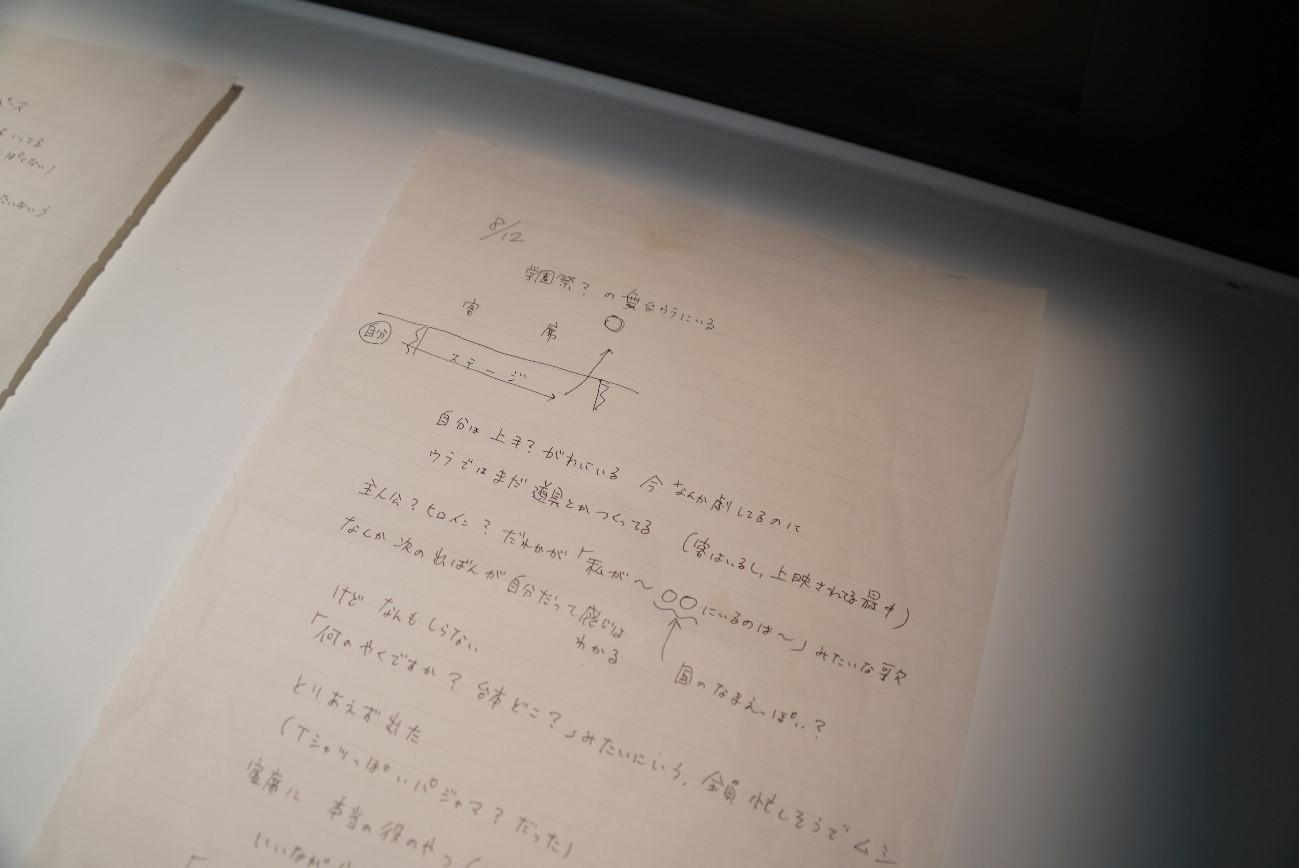 パス
いってる
8/12
学園祭?の舞台ウラにいる
客 席
自分
ステージ
自分は上手?がわにいる 今なんか劇してるのに
ウラではまだ道具とかつくってる (客はいるし、上映されてる最中)
主人公?ヒロイン?だれかが「私が〜○○にいるのは〜」みたいな歌
なんか次の出ばんが自分だって感じは
わかる
国のなまえっぽい?
けど なんもしらない
「何のやくですか?台本どこ?」みたいにいう、全員忙しそうでムシ
とりあえず出た
(Tシャツっぽいパジャマ?だった)
客席に 本当の役のやつ(
いいながら
「